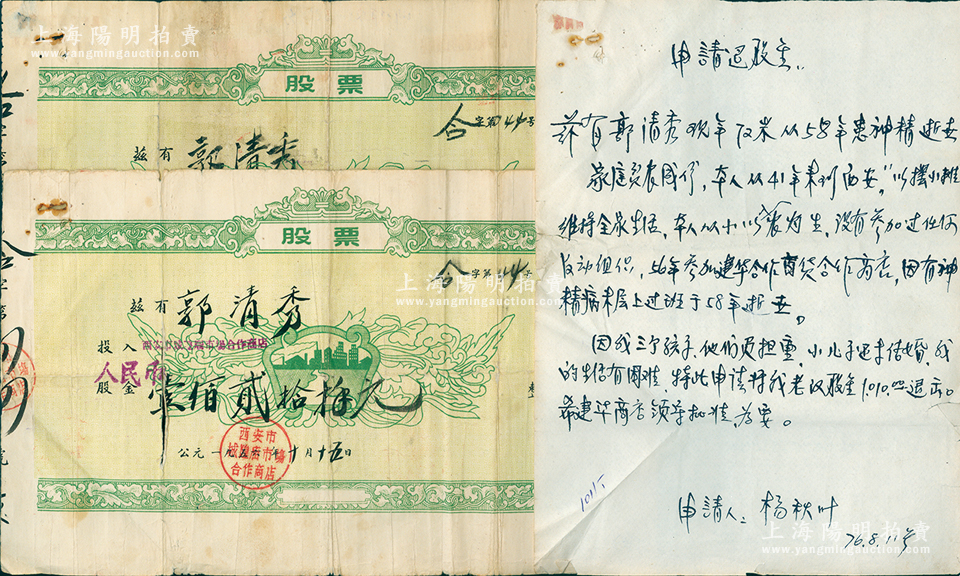 上海陽明拍賣
www.yangmingauction.com
股票
合字第44号
兹有 郭清秀
股票
合字第44号
兹有 郭清秀
投入西安市城隍庙市場合作商店
股金人民币
壹佰贰拾 元
公元一九五六年十月十五日
西安市
城隍庙市場
合作商店
申請退股金
兹有郭清秀 从58年患神精逝去
家庭贫农成份，本人从41年来到西安，以摆小摊
维持全家生活，本人从小以农为生，没有参加过任何
反动组织，56年参加建华合作百货合作商店，因有神
精病未后上过班于58年逝去。
因我三个孩子，他们负担重，小儿子还未结婚，我
的生活有困难，特此申请将我老汉股金 退出。
希建华商店领导批准为要。
申請人：杨秋叶
76.8.11号
上海陽明拍賣
www.yangmingauction.com